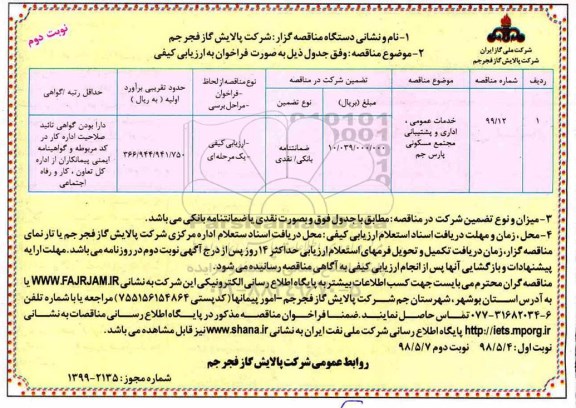 نوبت دوم
شرکت ملی گاز ایران
شرکت پالایش گاز فجر جم
۱-نام و نشانی دستگاه مناقصه گزار: شرکت پالایش گاز فجر جم
۲-موضوع مناقصه: وفق جدول ذیل به صورت فراخوان به ارزیابی کیفی
ردیف
شماره مناقصه
موضوع مناقصه
تضمین شرکت در مناقصه
مبلغ (ریال)
نوع تضمین
نوع مناقصه از لحاظ
-فراخوان
-مراحل برسی
حدود تقریبی برآورد
اولیه ( به ریال )
حداقل رتبه /گواهی
۱
۹۹/۱۲
خدمات عمومی ،
اداری و پشتیبانی
مجتمع مسکونی
پارس جم
۱۰/۰۳۹/۰۰۰/۰۰۰
ضمانتنامه
بانکی/ نقدی
-ارزیابی کیفی
-یک مرحله ای
۳۶۶/۹۴۴/۹۴۱/۷۵۰
دارا بودن گواهی تائید
صلاحیت اداره کار در
کد مربوطه و گواهینامه
ایمنی پیمانکاران از اداره
کل تعاون ، کار و رفاه
اجتماعی
۳-میزان و نوع تضمین شرکت در مناقصه: مطابق با جدول فوق و بصورت نقدی یا ضمانتنامه بانکی می باشد.
۴-محل، زمان و مهلت دریافت اسناد استعلام ارزیابی کیفی: محل دریافت اسناد استعلام اداره مرکزی شرکت پالایش گاز فجر جم یا تارنمای
مناقصه گزار، زمان دریافت تکمیل و تحویل فرمهای استعلام ارزیابی حداکثر ۱۴ روز پس از درج آگهی نوبت دوم در روزنامه می باشد. مهلت ارایه
پیشنهادات و بازگشایی آنها پس از انجام ارزیابی کیفی به آگاهی مناقصه رسانیده می شود.
مناقصه گران محترم می بایست جهت کسب اطلاعات بیشتر به پایگاه اطلاع رسانی الکترونیکی این شرکت به نشانی WWW.FAJRJAM.IR یا
به آدرس استان بوشهر، شهرستان جم شرکت پالایش گاز فجر جم-امور پیمانها (کدپستی ۷۵۵۱۵۶۱۵۴۸۶۴) مراجعه یا با شماره تلفن
۶-۰۷۷-۳۱۶۸۲۰۳۴ تماس حاصل نمایند. ضمنا فراخوان مناقصه مذکور در پایگاه اطلاع رسانی مناقصات به نشانی
http://iets.mporg.ir پایگاه اطلاع رسانی شرکت ملی نفت ایران به نشانی www.shana.ir نیز قابل مشاهده می باشد.
نوبت اول: ۹۸/۵/۴ نوبت دوم ۹۸/۵/۷
روابط عمومی شرکت پالایش گاز فجر جم
شماره مجوز: ۲۱۳۵-۱۳۹۹